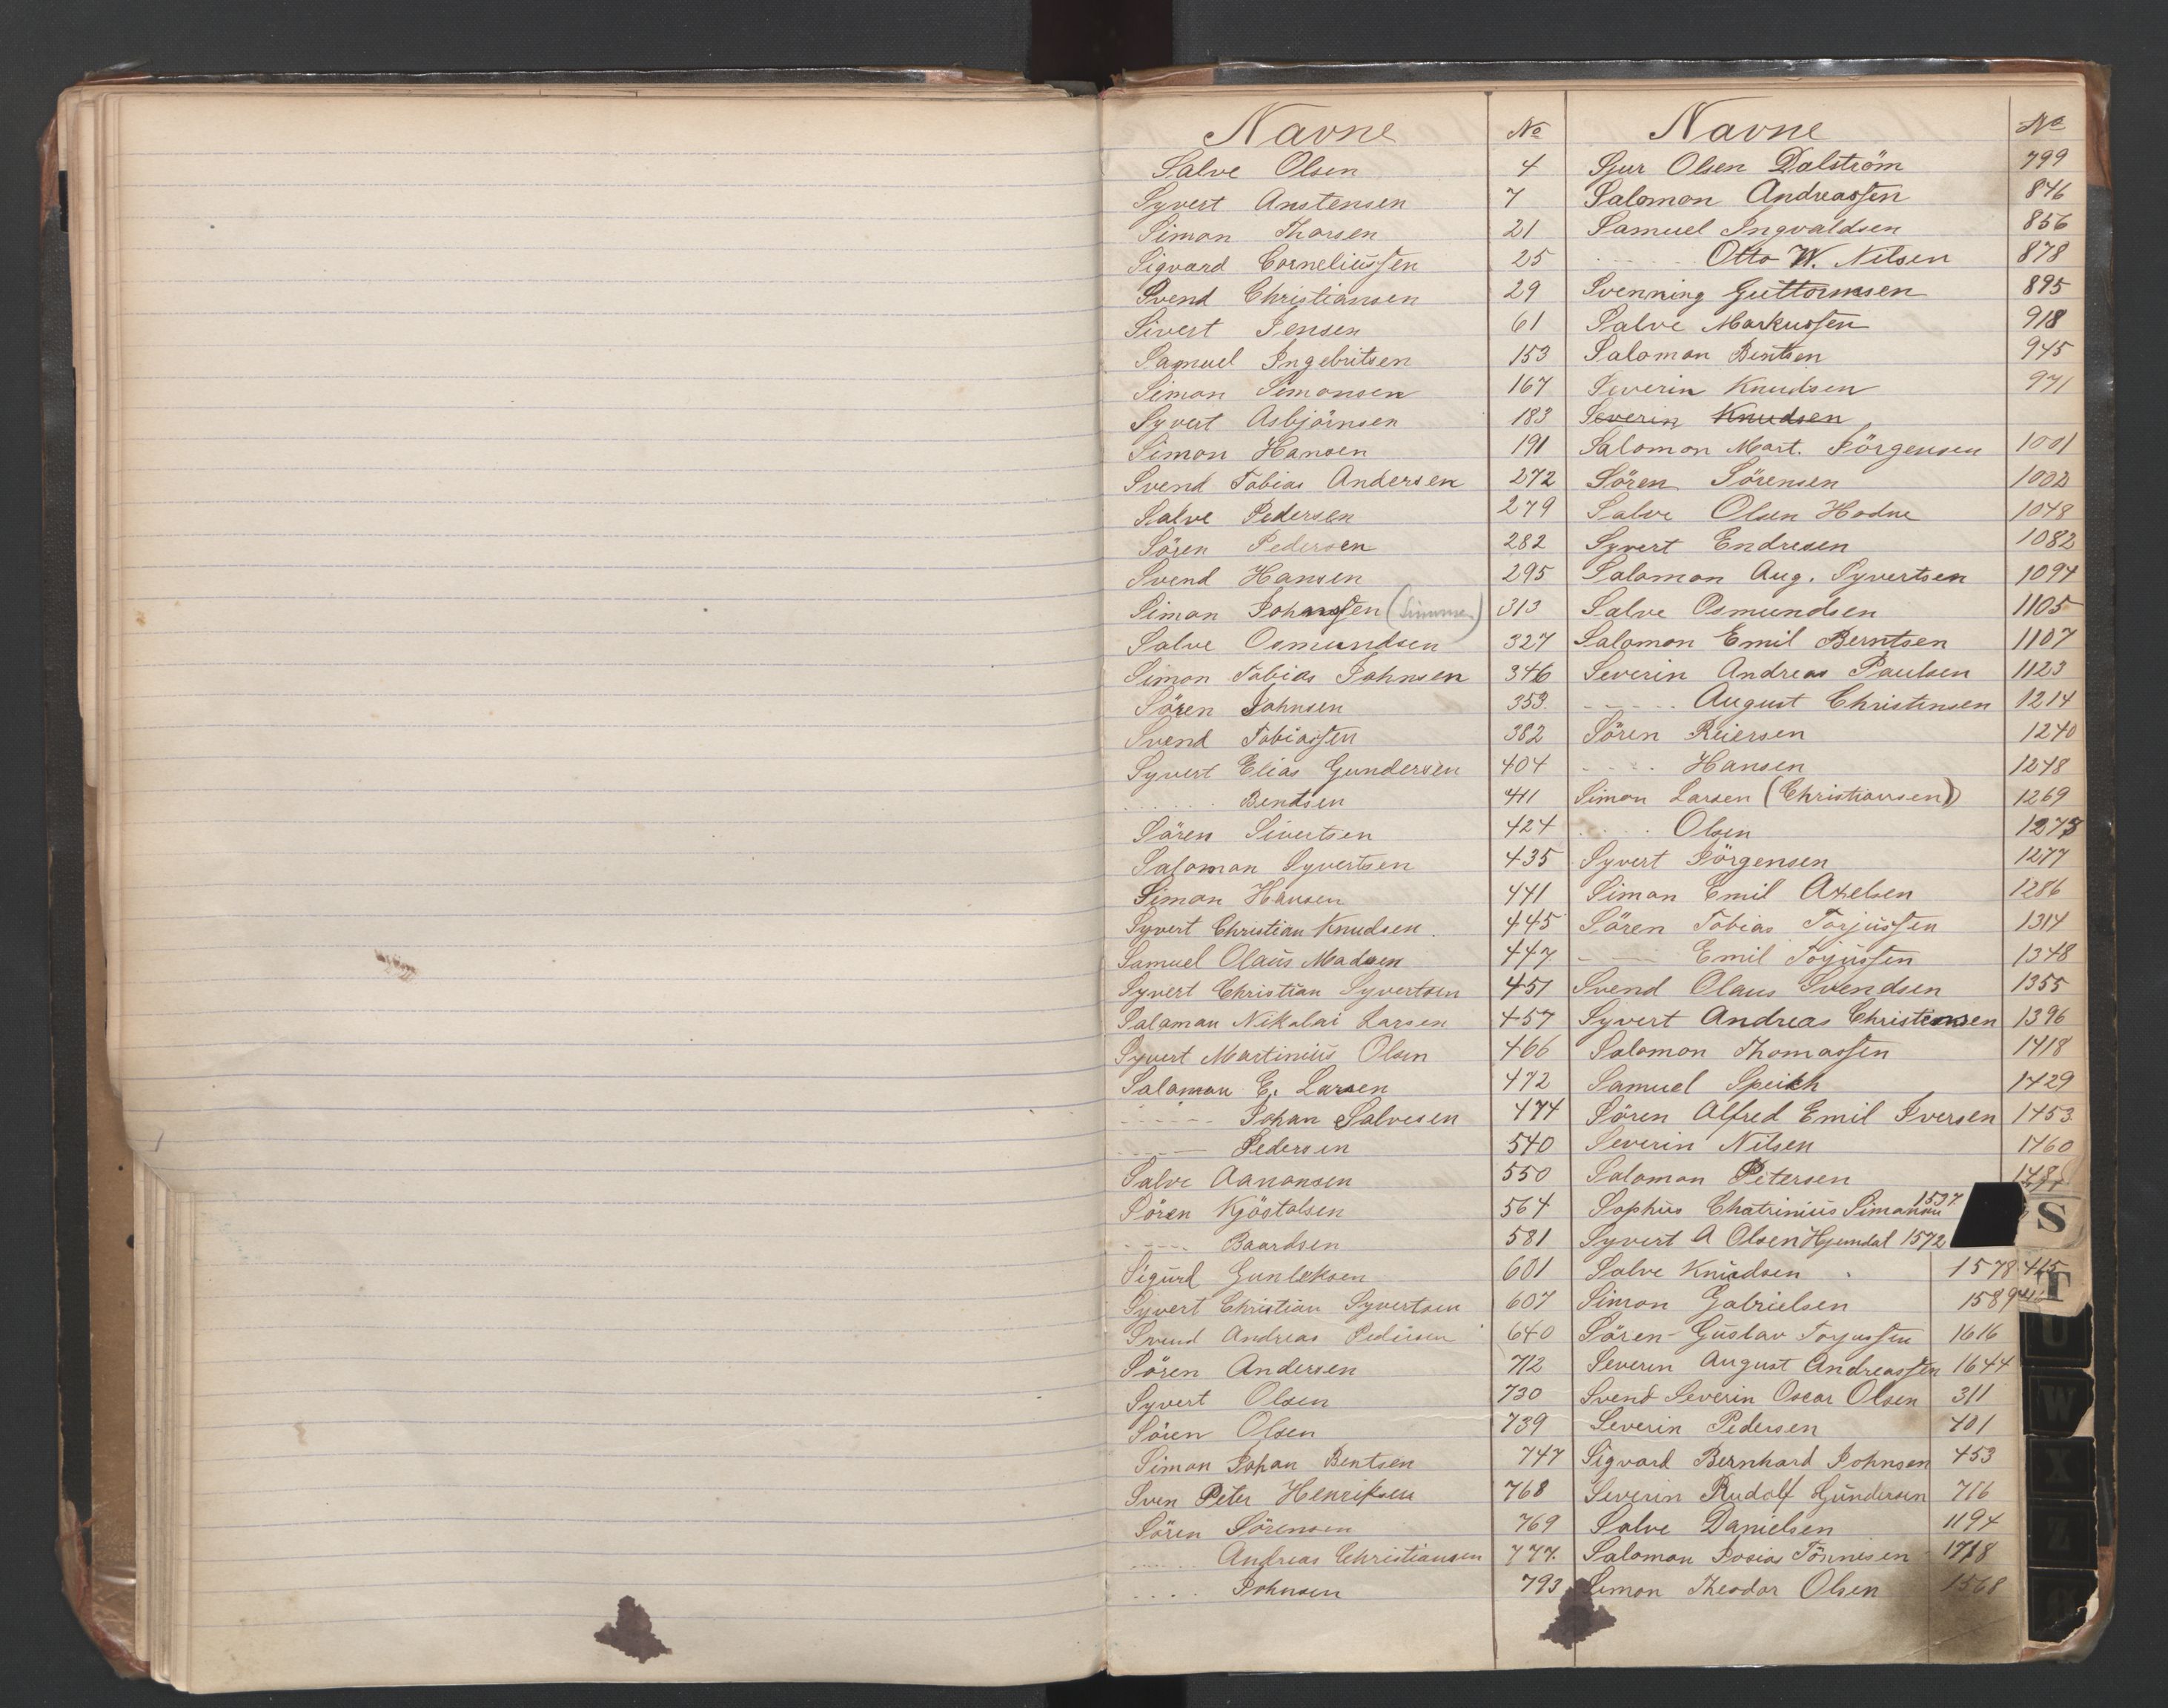 Navne No
Salve Olsen 4
Syvert Anstensen 7
Simon Thorsen 21
Sigvard Corneliussen 25
Svend Christiansen 29
Sivert Jensen 61
Samuel Ingebritsen 153
Simon Simonsen 167
Syvert Asbjörnsen 183
Simon Hansen 191
Svend Tobias Andersen 272
Salve Pedersen 279
Sören Pedersen 282
Svend Hansen 295
Simon Johnssen 313
Salve Osmundsen 327
Simon Tobias Johnsen 346
Sören Johnsen 353
Svend Tobiassen 382
Syvert Elias Gundersen 404
...... Bendsen 411
Sören Sivertsen 424
Salomon Syvertsen 435
Simon Hansen 441
Syvert Christian Knudsen. 445
Samuel Olaus Madsen 447
Syvert Christian Syvertsen 451
Salomon Nikolai Larsen 457
Syvert Martinius Olsen 466
Salomon E. Larsen 472
------ Johan Salvesen 474
------ Pedersen 540
Salve Aanonsen 550
Sören Kjöstolsen 564
----- Baardsen 581
Sigurd Gunleksen 601
Syvert Christian Syvertsen 607
Svend Andreas Pedersen 640
Sören Andersen 712
Syvert Olsen 730
Sören Olsen 739
Simon Johan Bentsen 747
Sven Peter Henriksen 768
Sören Sörensen 769
...... Andreas Christiansen 777.
.... Johnsen 793
Navne No
Sjur Olsen Dalström 799
Salomon Andreassen 846
Samuel Ingvaldsen 856
...... Otto W. Nilsen 878
Svenning Guttormsen 895
Salve Markussen 918
Salomon Bentsen 945
Severin Knudsen 971
Severin Knudsen
Salomon Mart. Jörgensen 1001
Sören Sörensen 1002
Salve Olsen Hodne 1048
Syvert Endresen 1082
Salomon Aug. Syvertsen 1094
Salve Osmundsen 1105
Salomon Emil Berntsen 1107
Severin Andreas Paulsen 1123
----- August Christensen 1214
Sören Reiersen 1240
.... Hansen 1248
Simon Larsen (Christiansen) 1269
.... Olsen 1273
Syvert Jörgensen 1277
Simon Emil Axelsen 1286
Sören Tobias Torjussen 1314
---- Emil Torjussen 1348
Svend Olaus Svendsen 1355
Syvert Andreas Christensen 1396
Salomon Thomassen 1418
Samuel Speich 1429
Sören Alfred Emil Iversen 1453
Severin Nilsen 1460
Salomon Petersen
Sophus Chatrinius Simonsen 1537
Syvert A Olsen Hjemdal 1572
Salve Knudsen 1578 415
Simon Gabrielsen 1589
Sören Gustav Torjussen 1616
Severin August Andreassen 1644
Svend Severin Oscar Olsen 311
Severin Pedersen 401
Sigvard Bernhard Johnsen 453
Severin Rudolf Gundersen 716
Salve Danielsen 1194
Salomon Josias Tönnesen 1718
Simon Theodor Olsen 1568
S
T
U
W
X
Z